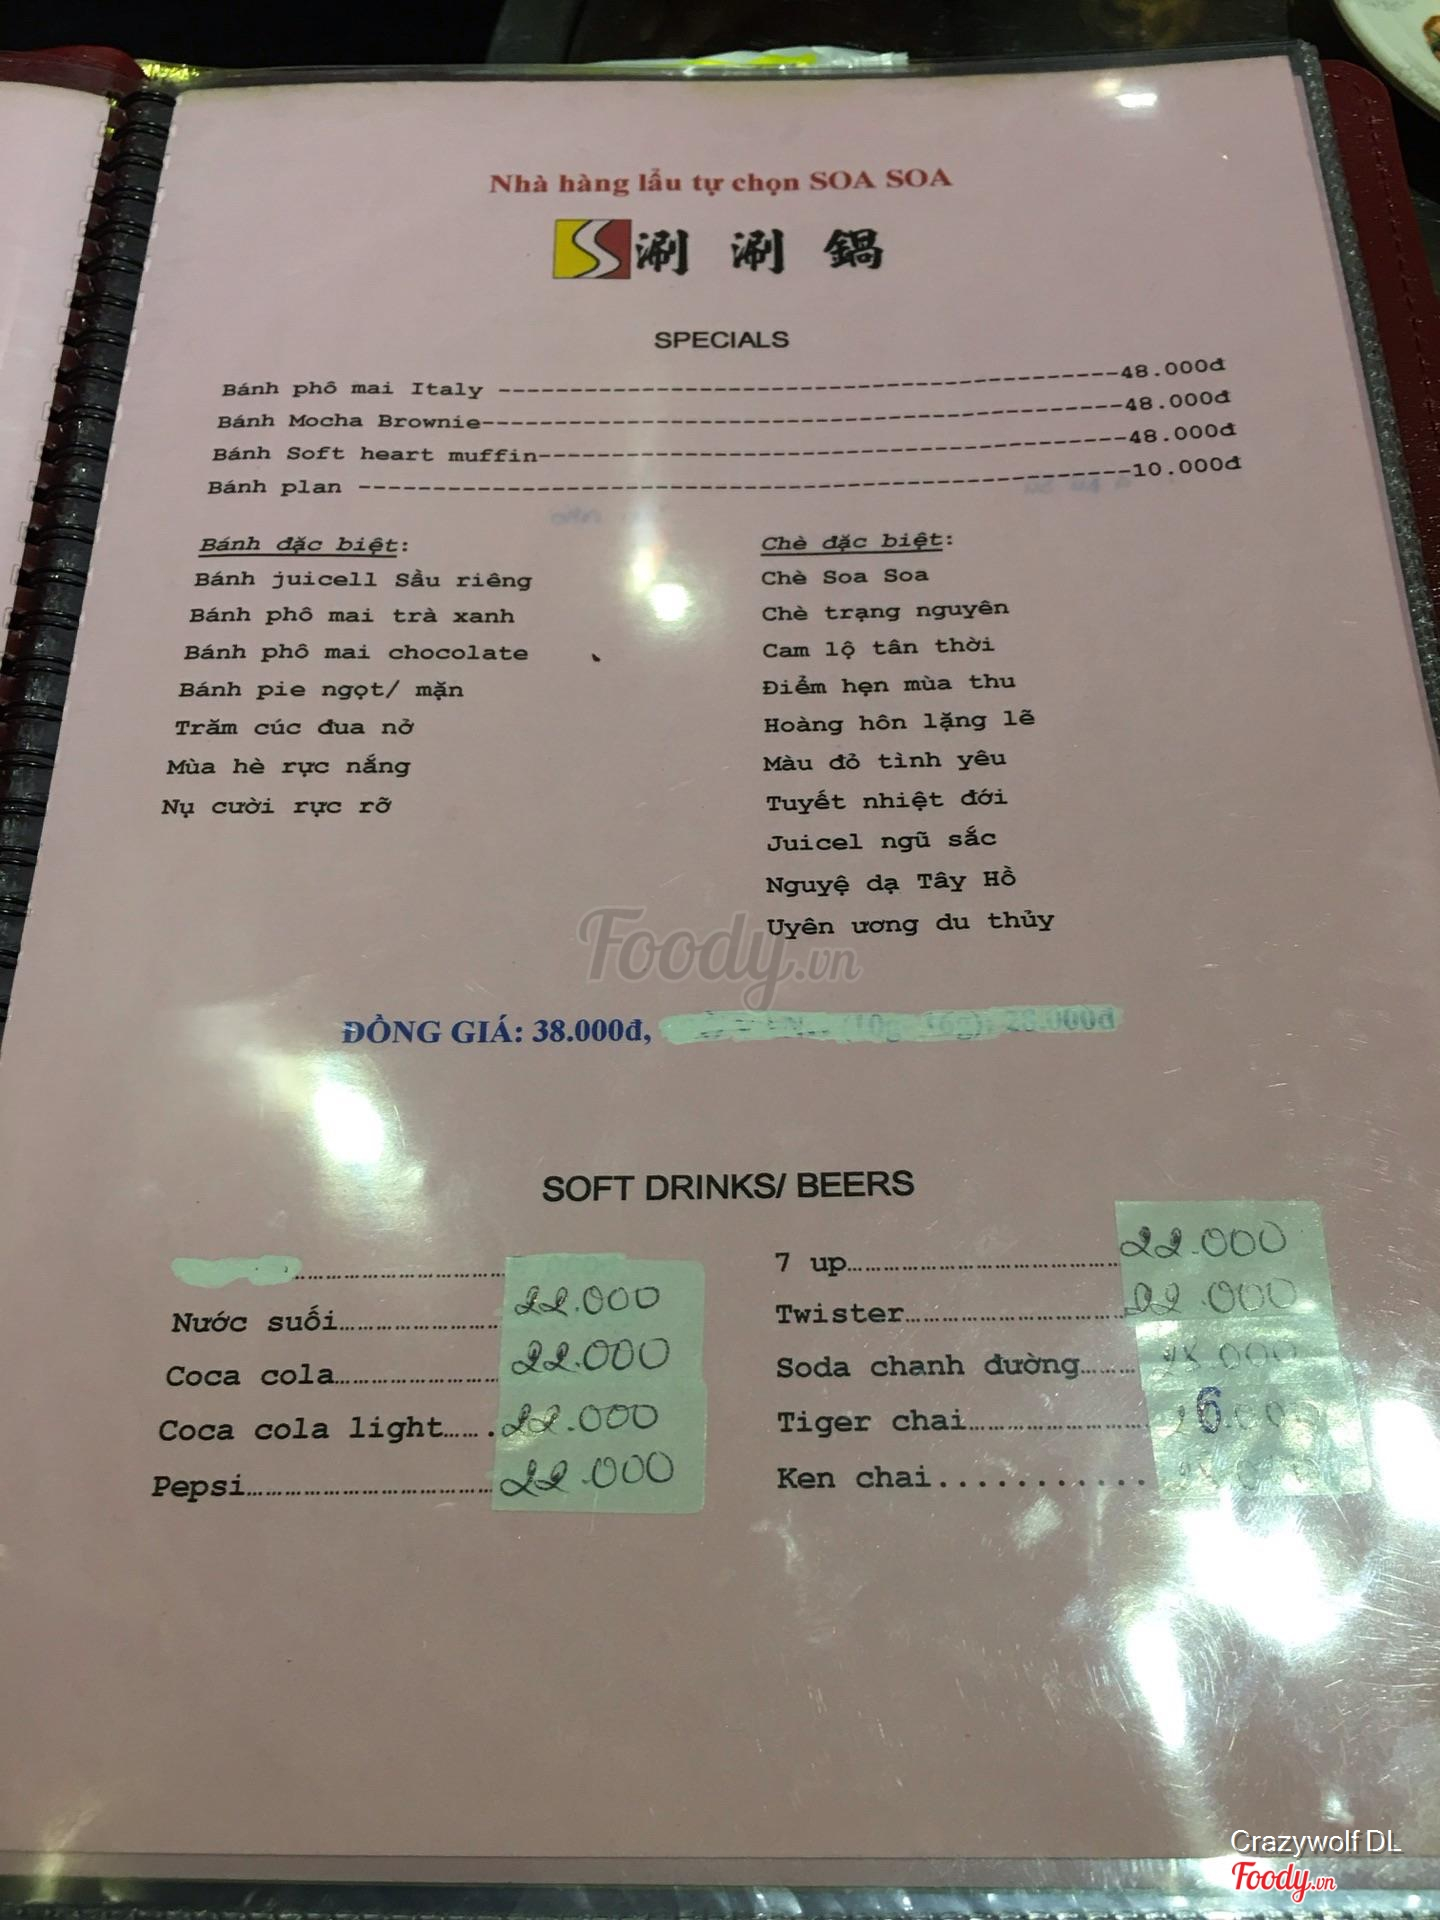 Nhà hàng lẩu tự chọn SOA SOA
涮 涮 鍋
SPECIALS
Bánh phô mai Italy -----------------------------------------48.000đ
Bánh Mocha Brownie------------------------------------------48.000đ
Bánh Soft heart muffin--------------------------------------48.000đ
Bánh plan --------------------------------------------------10.000đ
Bánh đặc biệt:
Bánh juicell Sầu riêng
Bánh phô mai trà xanh
Bánh phô mai chocolate
Bánh pie ngọt/ mặn
Trăm cúc đua nở
Mùa hè rực nắng
Nụ cười rực rỡ
Chè đặc biệt:
Chè Soa Soa
Chè trạng nguyên
Cam lộ tân thời
Điểm hẹn mùa thu
Hoàng hôn lặng lẽ
Màu đỏ tình yêu
Tuyết nhiệt đới
Juicel ngũ sắc
Nguyệ dạ Tây Hồ
Uyên ương du thủy
Foody.vn
ĐỒNG GIÁ: 38.000đ, (10g-16g): 28.000đ
SOFT DRINKS/ BEERS
Nước suối........................22.000
Coca cola........................22.000
Coca cola light.......22.000
Pepsi........................22.000
7 up........................22.000
Twister........................22.000
Soda chanh đường........
Tiger chai........................
Ken chai...........
Crazywolf DL
Foody.vn